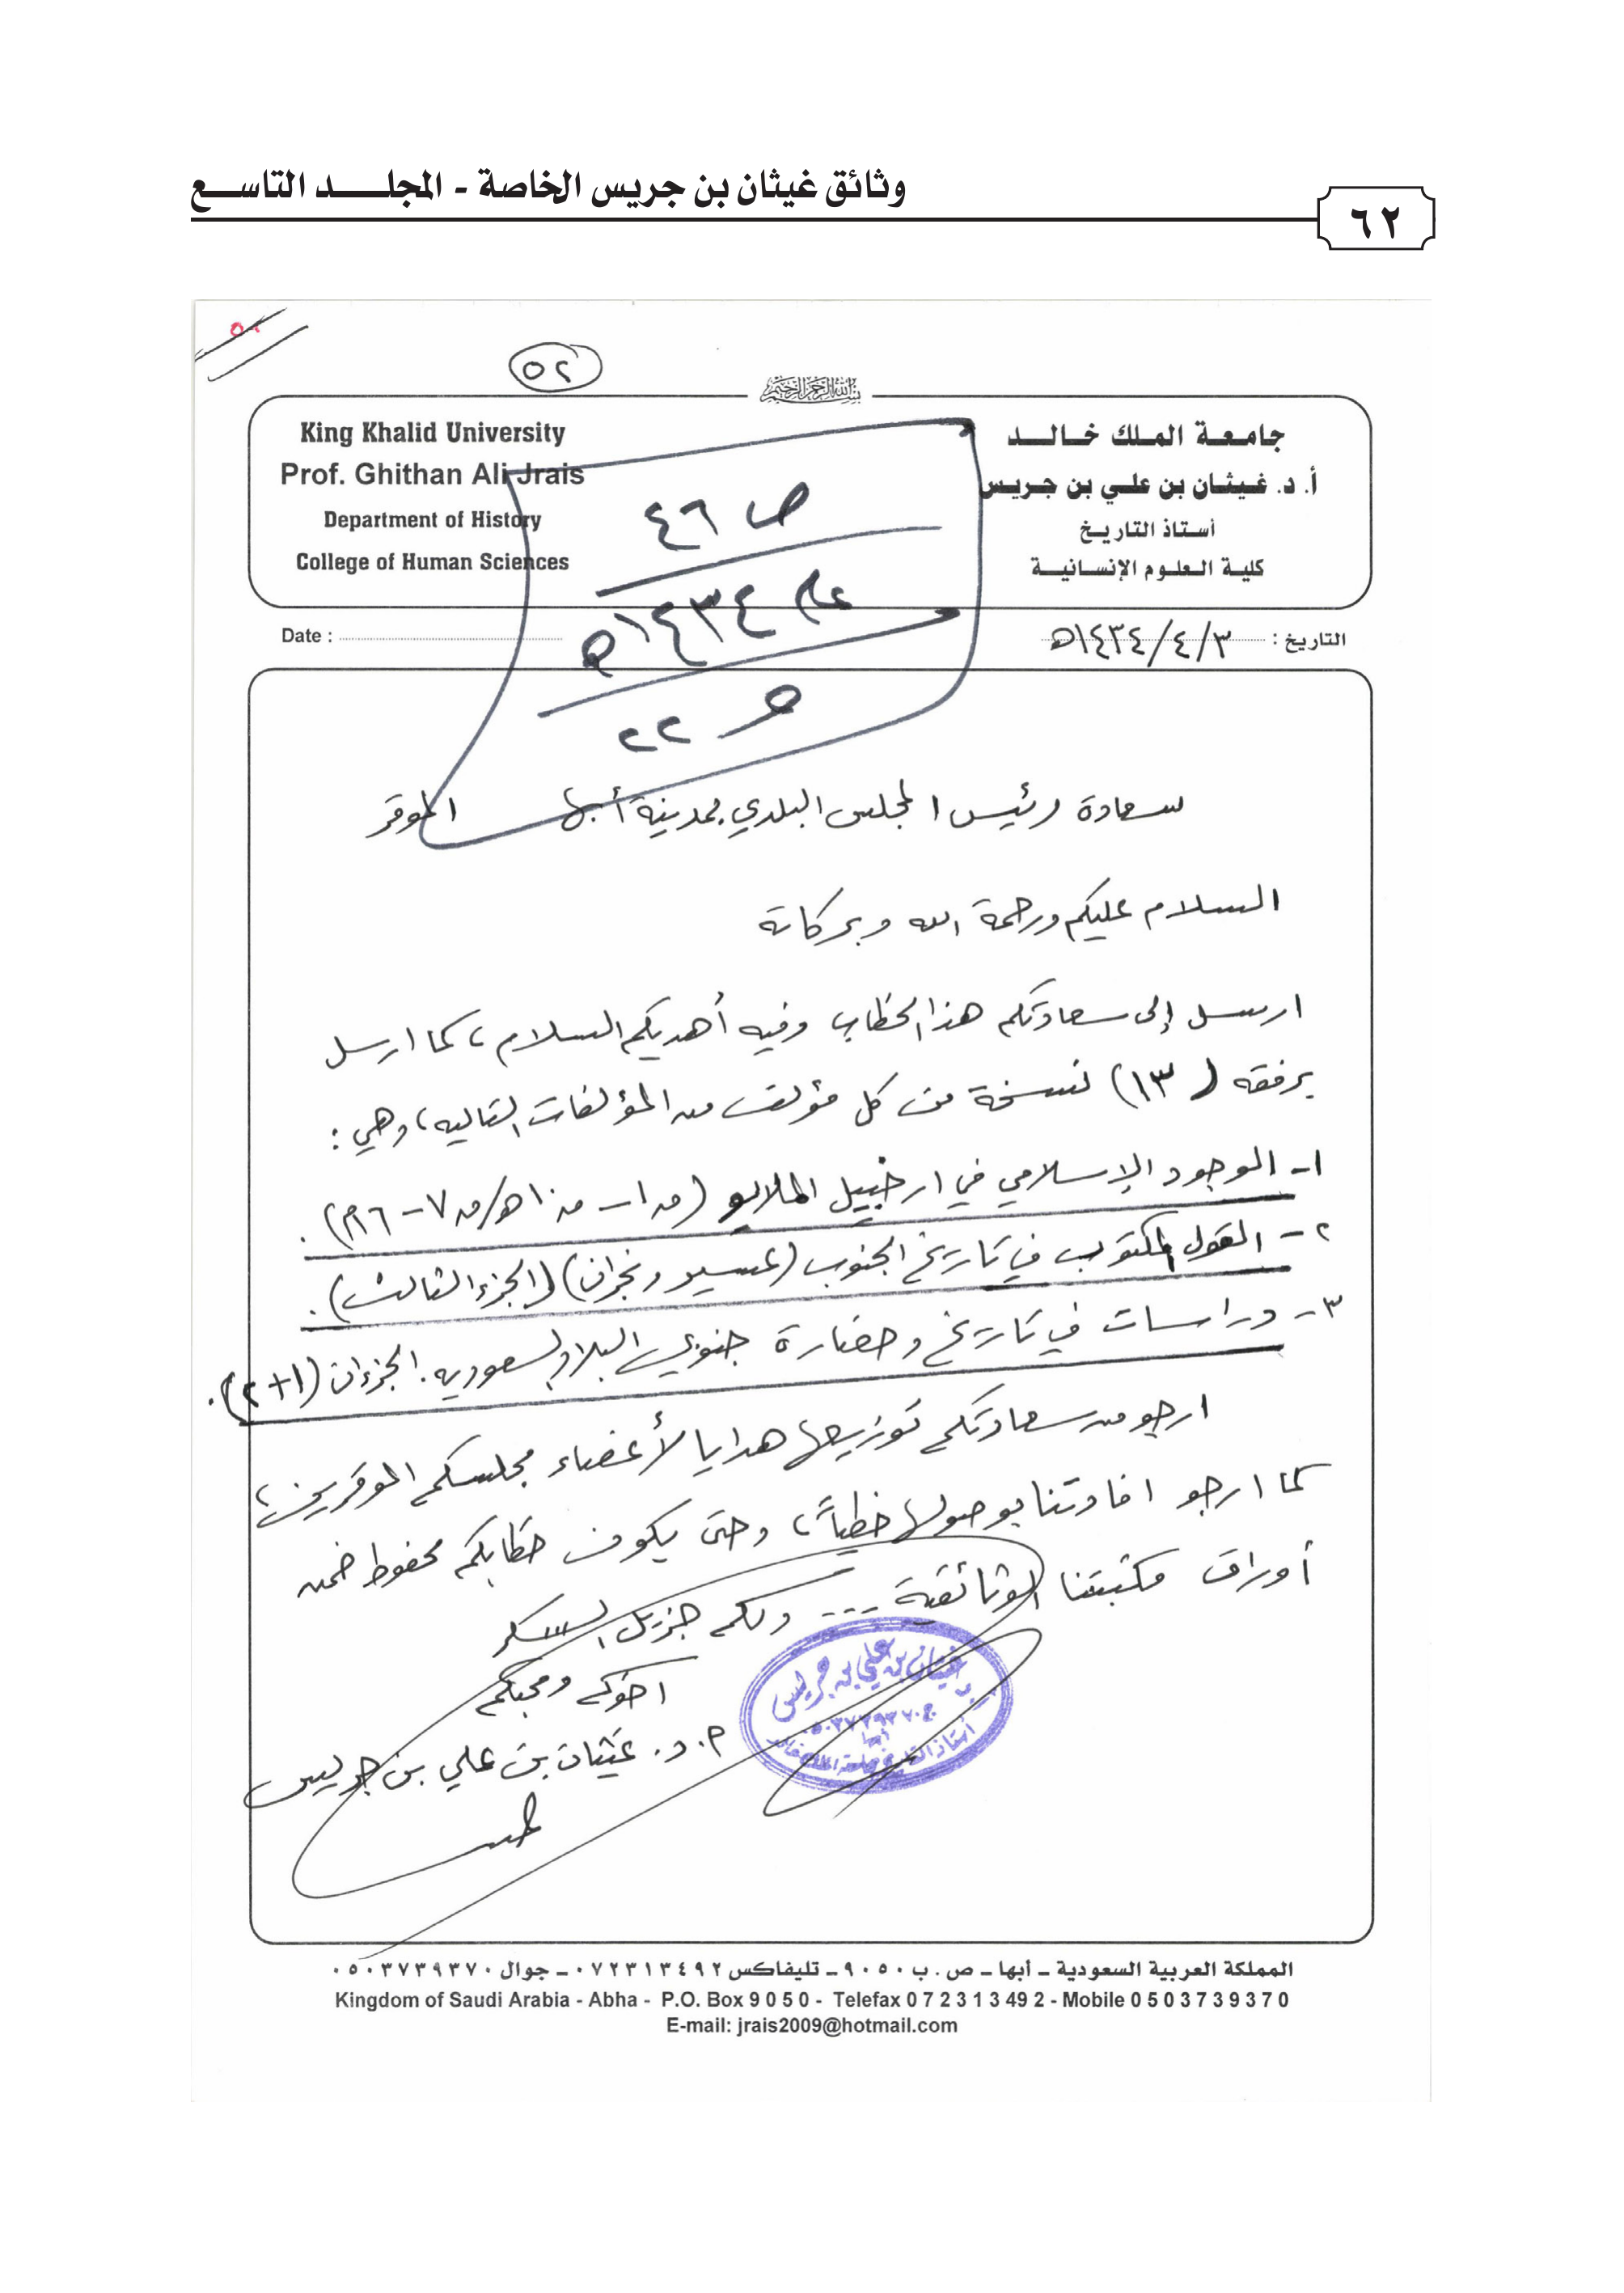 وثائق غيثان بن جريس الخاصة - المجلد التاسع
٦٢
٥٠
٥٢
بسم الله الرحمن الرحيم
جامعة الملك خالد
أ. د. غيثان بن علي بن جريس
أستاذ التاريخ
كلية العلوم الإنسانية
King Khalid University
Prof. Ghithan Ali Jrais
Department of History
College of Human Sciences
ص ٤٦
عام ١٤٣٤هـ
٢٢
التاريخ : ٣/٤/١٤٣٤هـ
Date :
سعادة رئيس المجلس البلدي بمدينة أبها الموقر
السلام عليكم ورحمة الله وبركاته
ارسل إلى سعادتكم هذا الخطاب وفيه أهديكم السلام، كما ارسل
برفقه (١٣) نسخة من كل مؤلف من المؤلفات التاليه، وهي :
١- الوجود الإسلامي في ارخبيل الملايو (من ق١ - ق١٠هـ/ ق٧ - ١٦م).
٢- القول المكتوب في تاريخ الجنوب (عسير ونجران) (الجزء الثالث).
٣- دراسات في تاريخ وحضارة جنوبي البلاد السعوديه. الجزءان (١+٢).
ارجو من سعادتكم توزيعها هدايا لأعضاء مجلسكم الموقرين،
كما ارجو افادتنا بوصولها خطياً، وحتى يكون خطابكم محفوظ ضمن
أوراق مكتبتنا الوثائقية ... ولكم جزيل الشكر
اخوكم ومحبكم
أ. د. غيثان بن علي بن جريس
غيثان بن علي بن جريس
أبها
أستاذ التاريخ بجامعة الملك خالد
المملكة العربية السعودية ـ أبها ـ ص . ب ٩٠٥٠ ـ تليفاكس ٠٧٢٣١٣٤٩٢ ـ جوال ٠٥٠٣٧٣٩٣٧٠
Kingdom of Saudi Arabia - Abha - P.O. Box 9 0 5 0 - Telefax 0 7 2 3 1 3 49 2 - Mobile 0 5 0 3 7 3 9 3 7 0
E-mail: jrais2009@hotmail.com